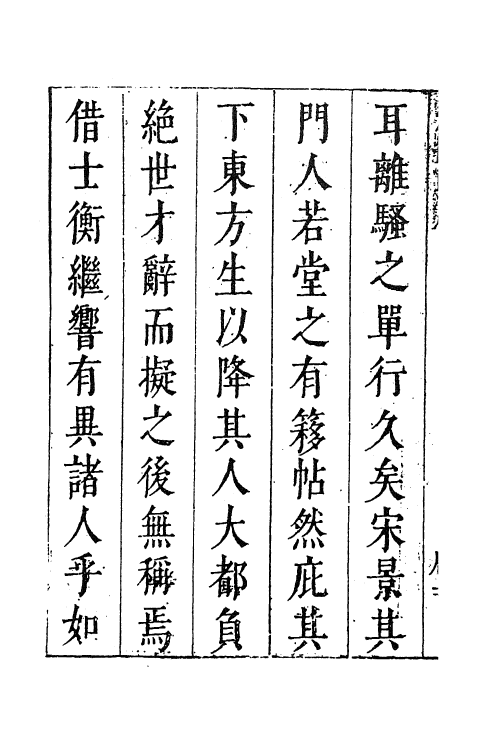 耳離騷之單行久矣宋景其
門人若堂之有簃帖然庇其
下東方生以降其人大都負
絶世才辭而擬之後無稱焉
借士衡繼響有異諸人乎如